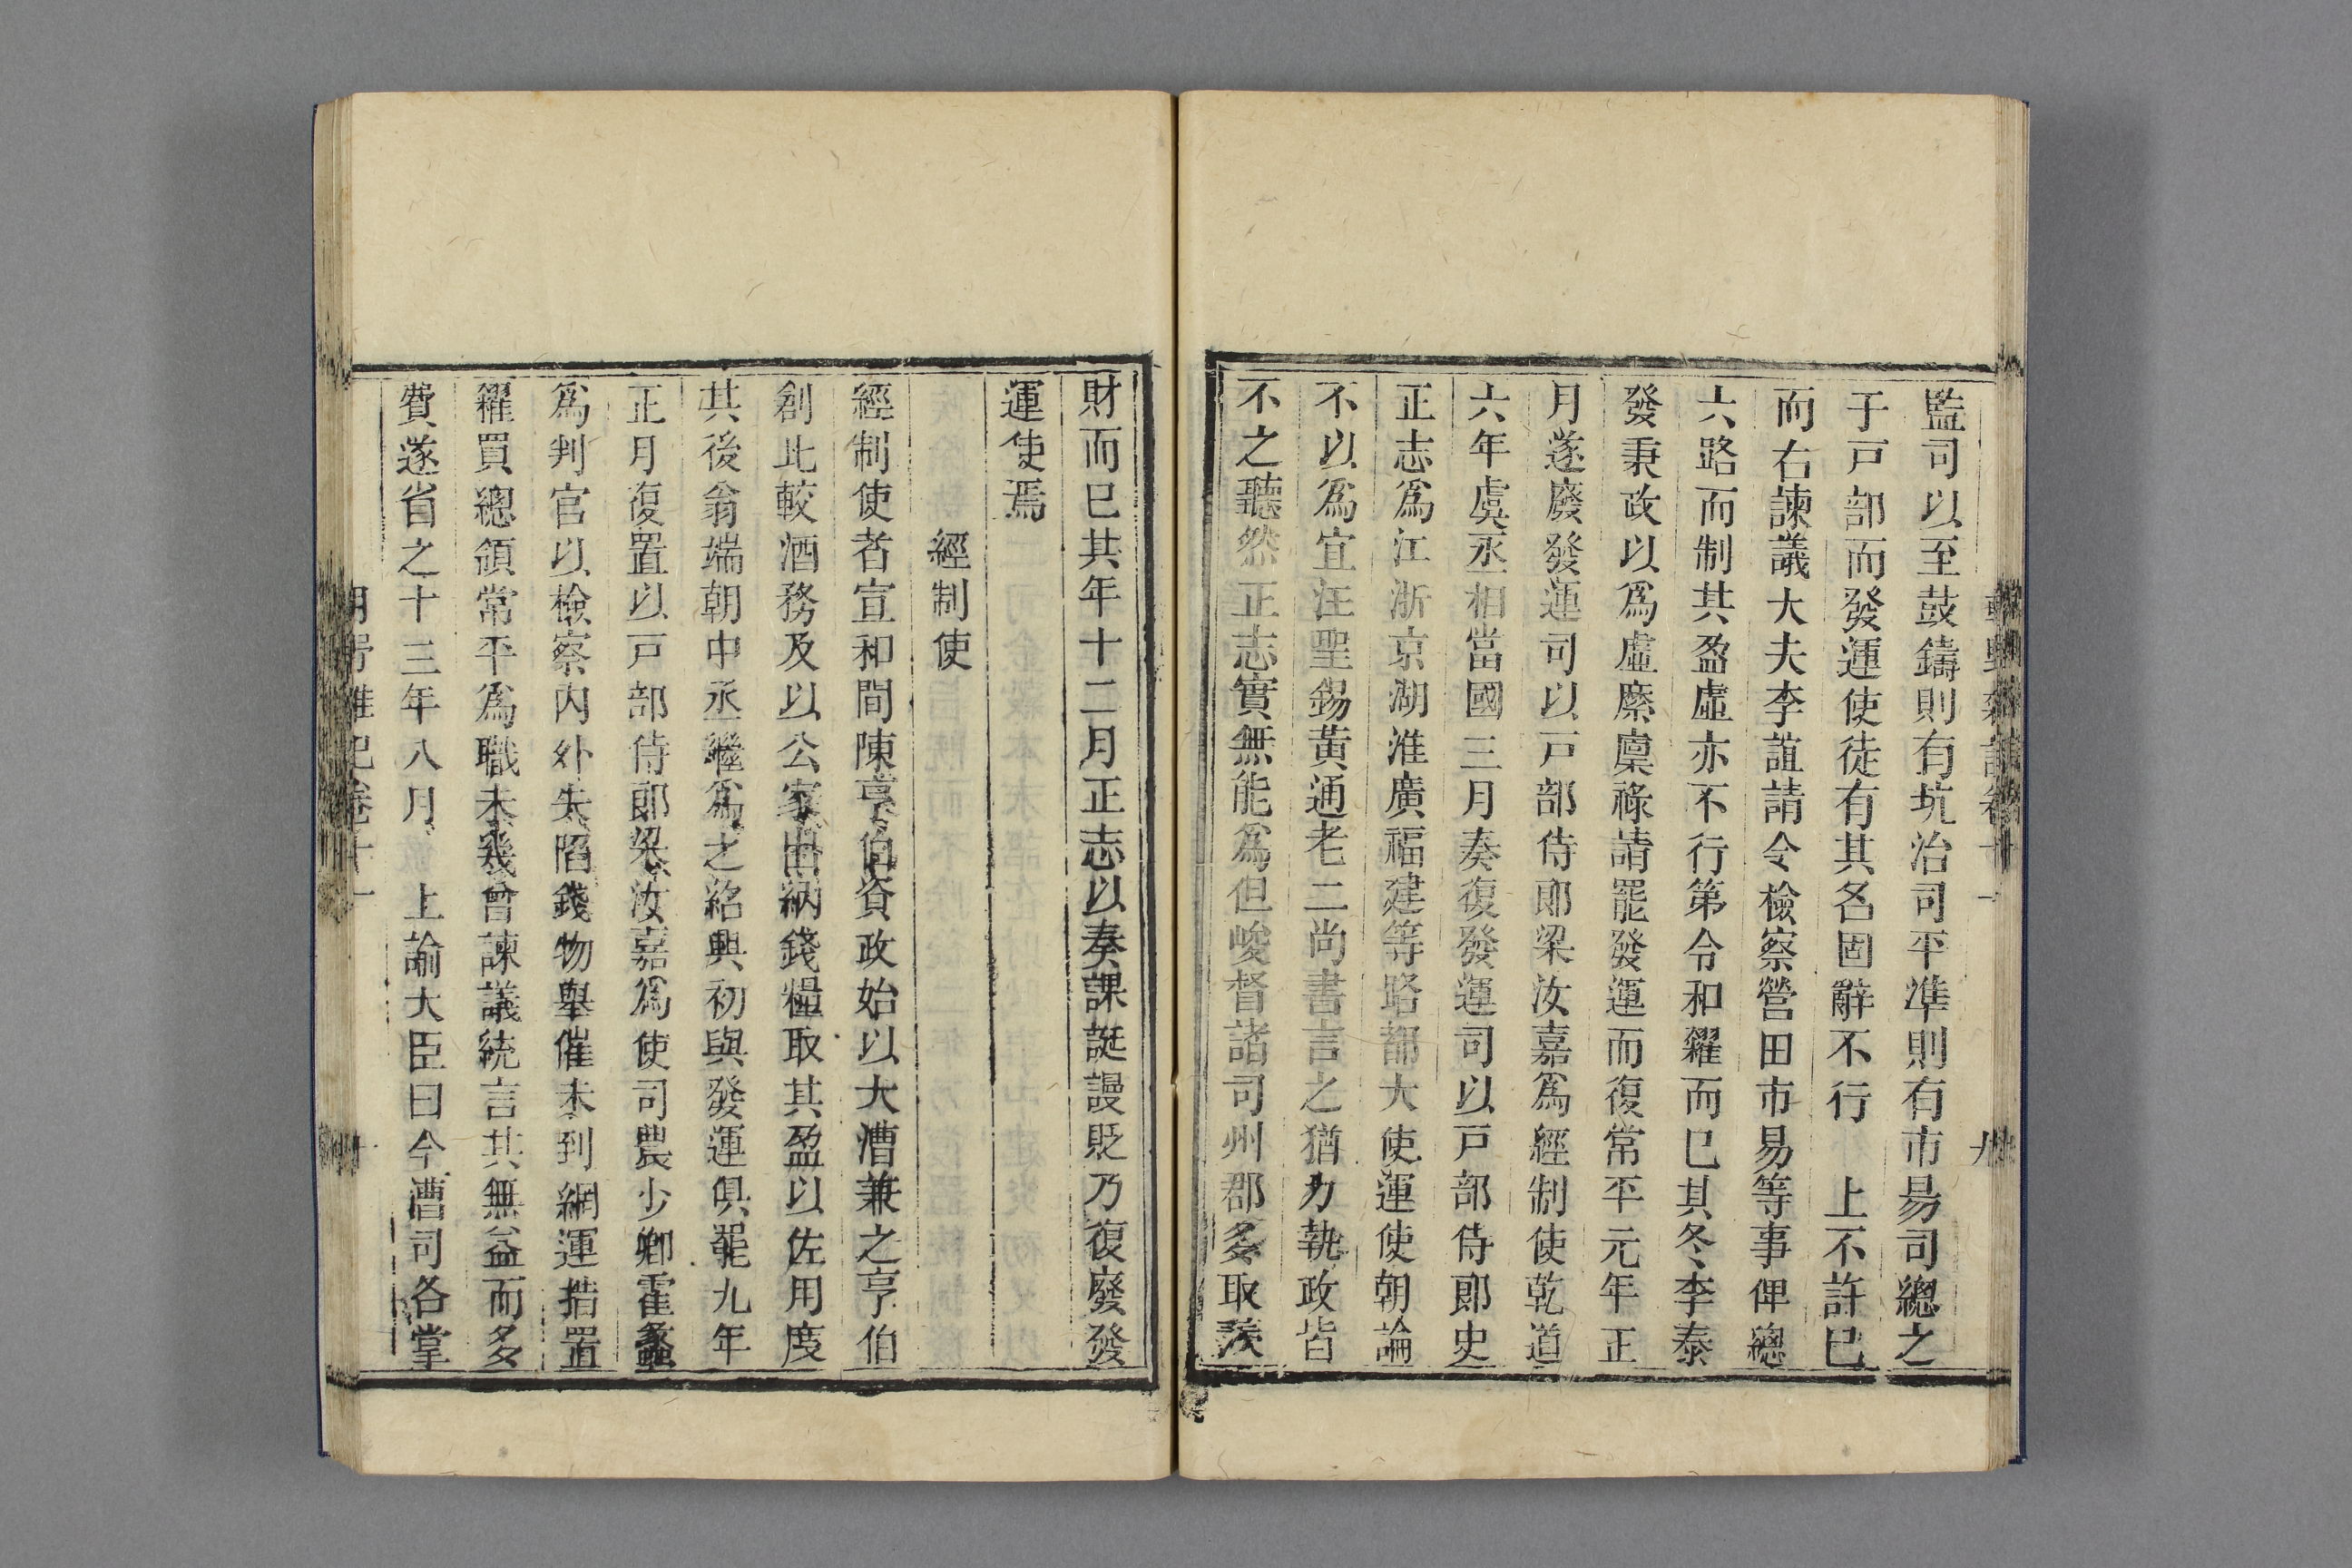 監司以至鼓鑄則有坑治司平準則有市易司總之
于戸部而發運使徒有其名固辭不行　上不許已
而右諫議大夫李誼請令檢察營田市易等事俾總
六路而制其盈虛亦不行第令和糴而已其冬李泰
發秉政以爲虛縻稟祿請罷發運而復常平元年正
月遂廢發運司以戸部侍郎梁汝嘉爲經制使乾道
六年虞丞相當國三月奏復發運司以戸部侍郎史
正志爲江浙京湖淮廣福建等路都大使運使朝論
不以爲宜汪聖錫黃通老二尚書言之猶力執政皆
不之聽然正志實無能爲但峻督諸司州郡多取羨
財而已其年十二月正志以奏課誕謾貶乃復廢發
運使焉
經制使
經制使者宣和間陳亨伯資政始以大漕兼之亨伯
創此較酒務及以公家出納錢糧取其盈以佐用度
其後翁端朝中丞繼爲之紹興初與發運俱罷九年
正月復置以戸部侍郎梁汝嘉爲使司農少卿霍蠡
爲判官以檢察内外失陷錢物舉催未到綱運措置
糴買總領常平爲職未幾曾諫議統言其無益而多
費遂省之十三年八月　上諭大臣曰今漕司各掌